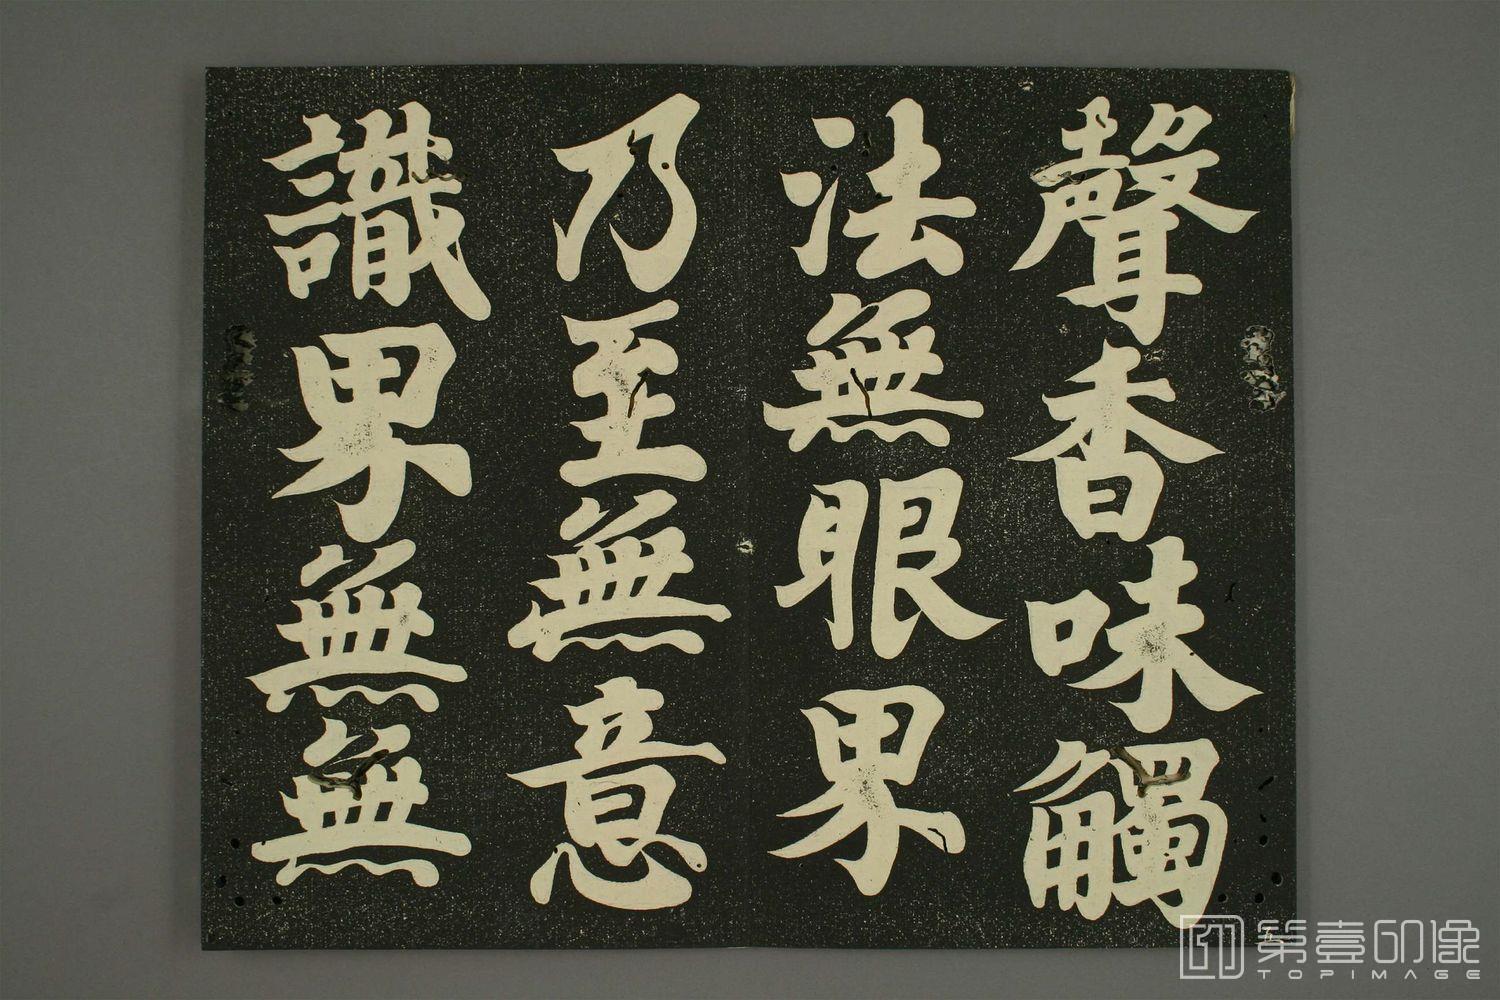 聲香味觸
法無眼界
乃至無意
識界無無
五
第壹印像
TOPIMAGE